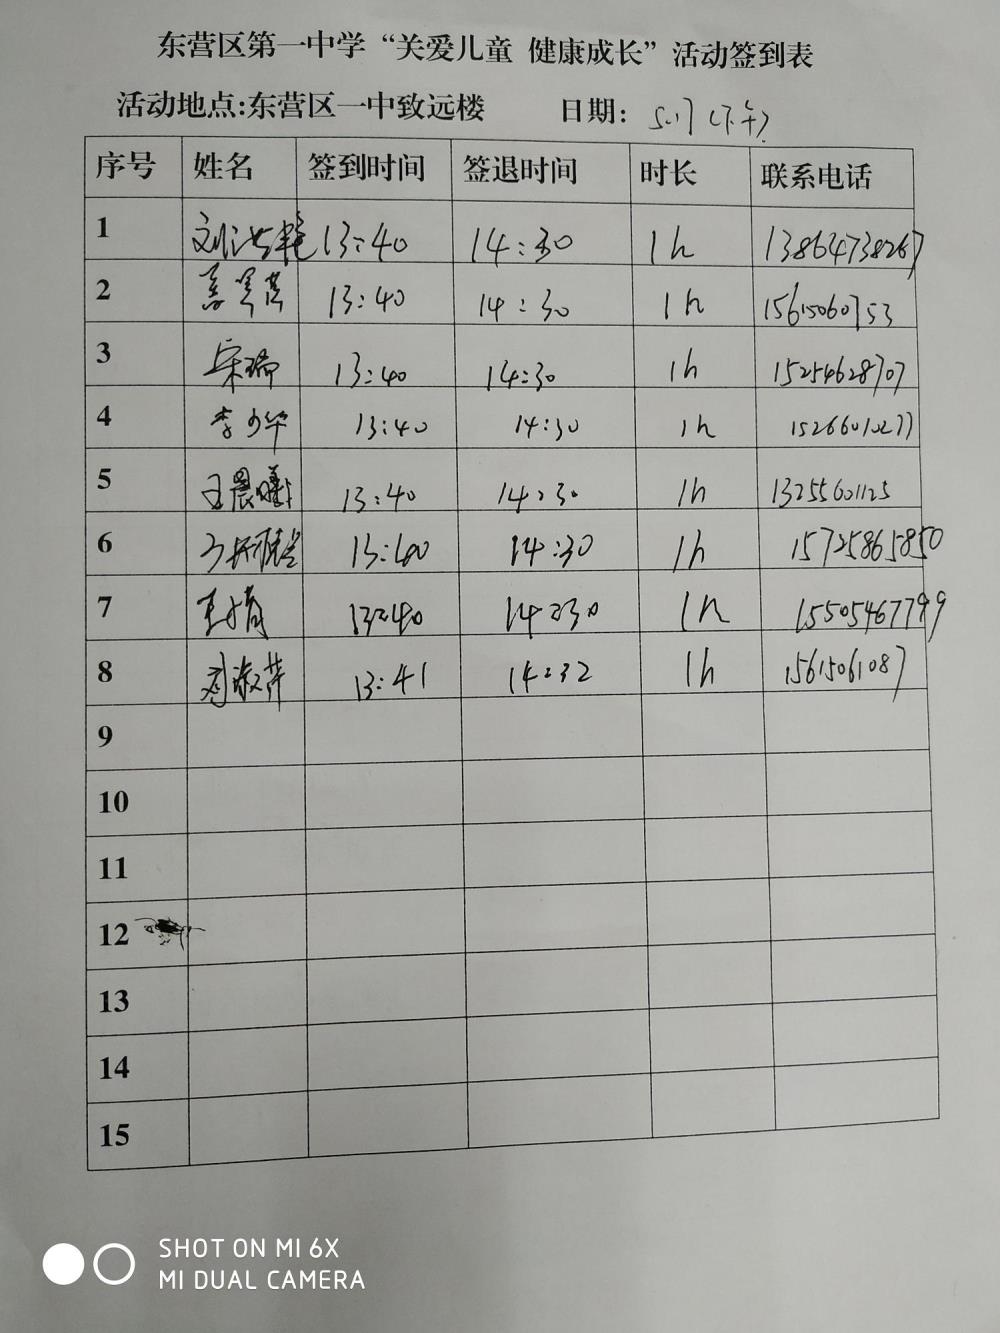 东营区第一中学“关爱儿童 健康成长”活动签到表
活动地点:东营区一中致远楼 日期: 5.17(下午)
序号 姓名 签到时间 签退时间 时长 联系电话
1 刘洪艳 13:40 14:30 1h 13864738267
2 13:40 14:30 1h 15615060753
3 宋瑞 13:40 14:30 1h 15254628707
4 李少华 13:40 14:30 1h 15266010277
5 王晨曦 13:40 14:30 1h 13255601125
6 13:40 14:30 1h 15725865850
7 王婧 13:40 14:30 1h 15505467799
8 刘淑萍 13:41 14:32 1h 15615061087
9
10
11
12
13
14
15
SHOT ON MI 6X
MI DUAL CAMERA